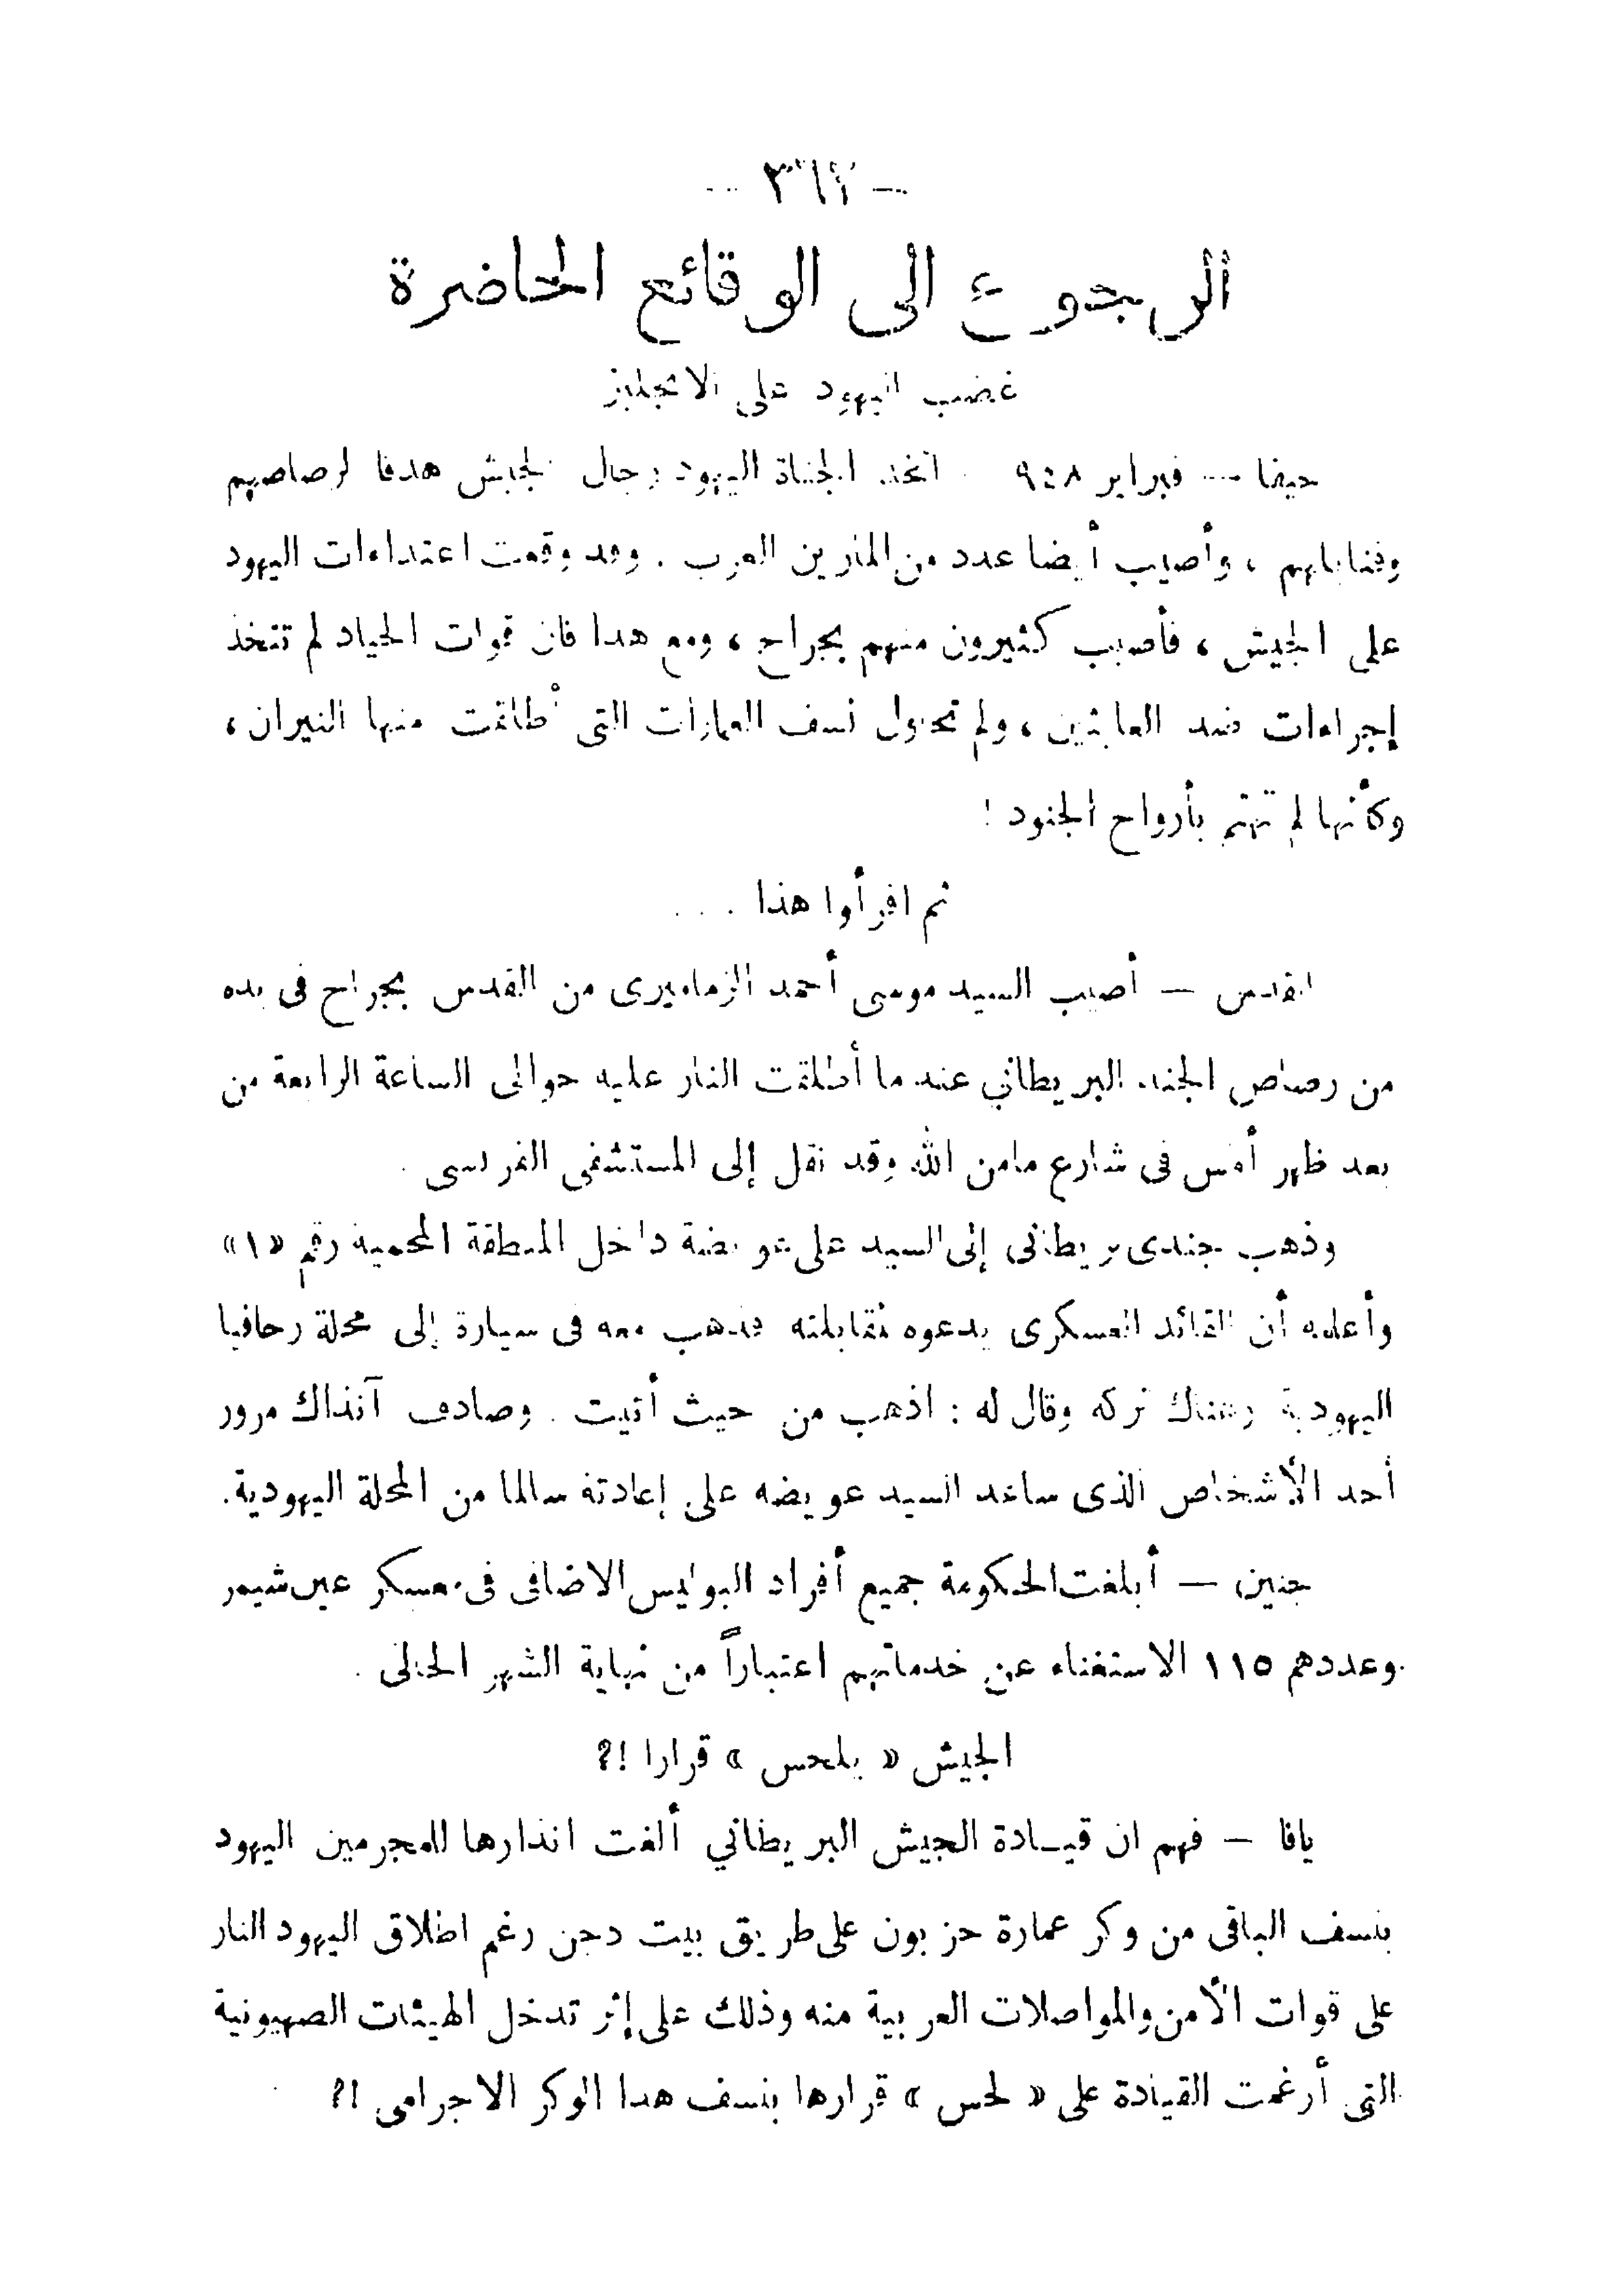 الرجوع الى الوقائع الحاضرة
غضب اليهود على الانجليز
حيفا — فبراير ٩٤٨ . اتخذ الجناة اليهود رجال الجيش هدفا لرصاصهم
وقنابلهم ، وأصيب أيضا عدد من المارين العرب . وقد وقعت اعتداءات اليهود
على الجيش ، فأصيب كثيرون منهم بجراح ، ومع هذا فان قوات الحياد لم تتخذ
إجراءات ضد العابثين ، ولم تحاول نسف العمارات التى أطلقت منها النيران ،
وكأنها لم تهتم بأرواح الجنود !
ثم اقرأوا هذا . . .
القدس — أصيب السيد موسى أحمد الزماميرى من القدس بجراح فى يده
من رصاص الجند البريطاني عند ما أطلقت النار عليه حوالى الساعة الرابعة من
بعد ظهر أمس فى شارع مامن الله وقد نقل إلى المستشفى الفرنسى .
وذهب جندى بريطانى إلى السيد على عويضة داخل المنطقة المحمية رقم «١»
وأعلمه أن القائد العسكرى يدعوه لمقابلته فذهب معه فى سيارة إلى محلة رحافيا
اليهودية وهناك تركه وقال له : اذهب من حيث أتيت . وصادف آنذاك مرور
أحد الأشخاص الذى ساعد السيد عويضه على إعادته سالما من المحلة اليهودية.
جنين — أبلغت الحكومة جميع أفراد البوليس الاضافى فى معسكر عين شيمر
وعددهم ١١٥ الاستغناء عن خدماتهم اعتباراً من نهاية الشهر الحالى .
الجيش « يلحس » قرارا !؟
يافا — فهم ان قيادة الجيش البريطاني ألغت انذارها للمجرمين اليهود
بنسف الباقى من وكر عمارة حزبون على طريق بيت دجن رغم اطلاق اليهود النار
على قوات الأمن والمواصلات العربية منه وذلك على إثر تدخل الهيئات الصهيونية
التى أرغمت القيادة على « لحس » قرارها بنسف هذا الوكر الاجرامى !؟